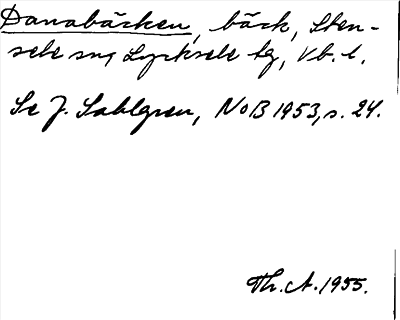 Danabäcken, bäck, Sten-
sele sn, Lycksele tg, Vb. l.
Se J. Sahlgren, NoB 1953, s. 24.
Th. A. 1955.